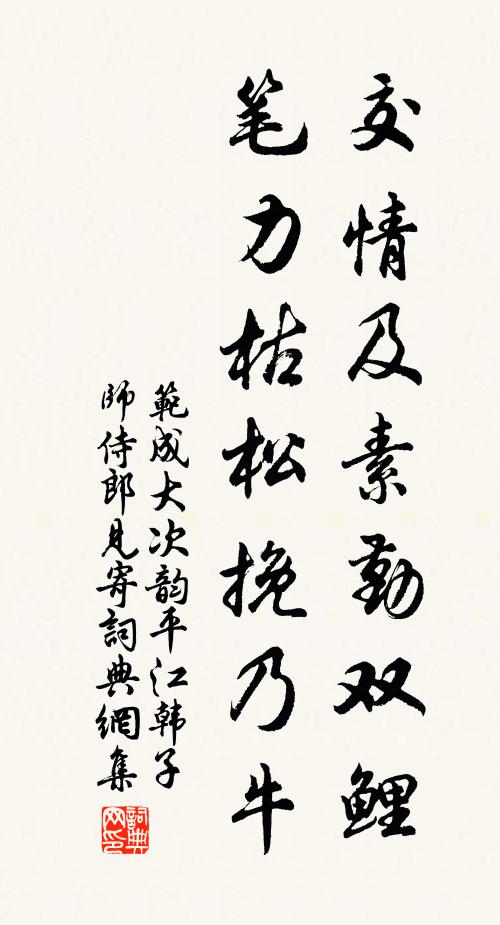 交情及素勤双鲤
笔力枯松挽乃牛
範成大次韵平江韩子
師侍郎見寄詞典網集
詞典
网印